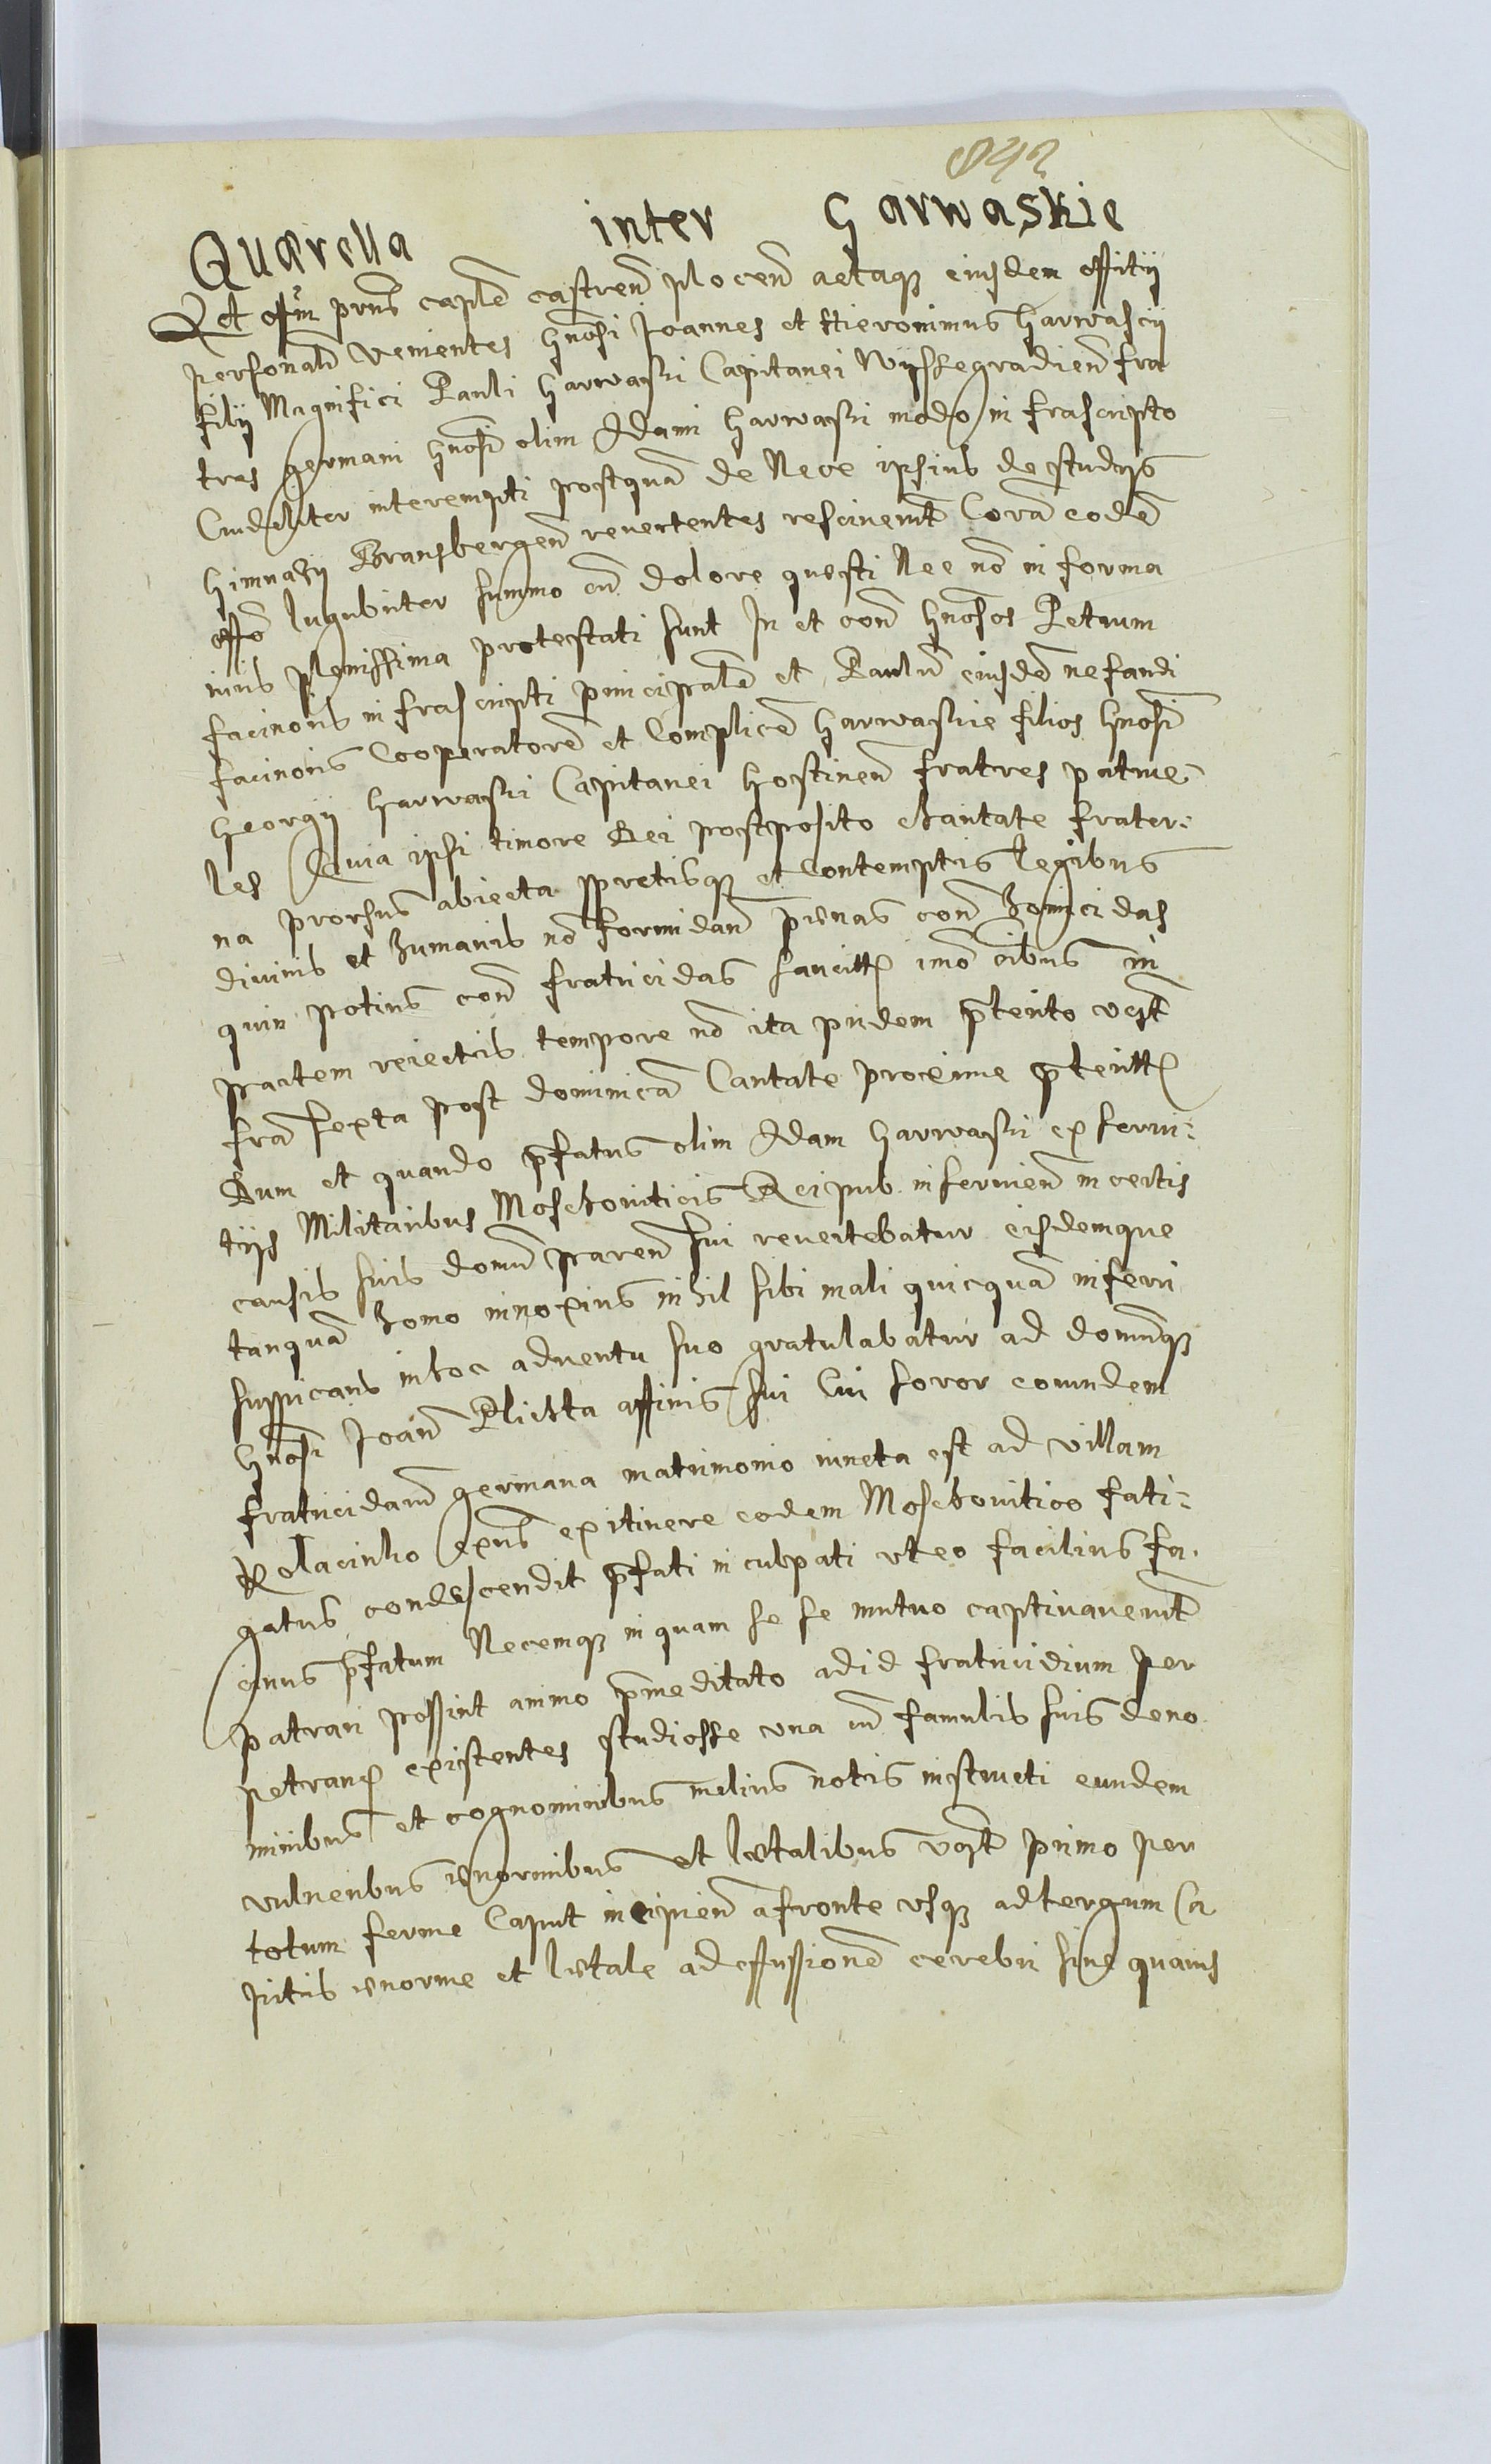 892
Quærella inter Garwaskie
Ad offm prns captle castren plocen actaq eiusdem offitij
personalr venientes Gnosi Joannes et Hieronimus Garwascij
filij Magnifici Pauli Garwaski Capitanei Wyssegradien fra
tres germani Gnosi olim Adami Garwaski modo infrascripto
Crudeliter interempti postqua de Nece ipsius de studijs
Gimnasij Bransbergen reuertentes resciuerunt Cora eode
offo lugubriter summo cu dolore questi Nec no in forma
iuris plenissima protestati sunt In et con Gnosos Petrum
facinoris infrascripti principale et Paulu eiusde nefandi
facinoris Cooperatore et Complice Garwaskie filios Gnosi
Georgij Garwaski Capitanei Gostinen fratres patrue-
les Quia ipsi timore Dei postposito charitate frater-
na prorsus abiecta spretisq et Contemptis legibus
diuinis et humanis no formidan pœnas con homicidas
quin potius con fratricidas sancitt imo oibus in
partem reiectis tempore no ita pridem pterito vest
fria sexta post dominica Cantate proxime pteritt
Dum et quando pfatus olim Adam Garwaski ex serui-
tijs Militaribus Moschouiticis Reipub inseruien in certis
causis suis domu paren sui reuertebatur eisdemque
tanqua homo innoxius nihil sibi mali quicqua inferri
suspicans in hoc aduentu suo gratulabatur ad domumq
Gnosi Joan Plichta affinis sui Cui soror eorundem
fratricidaru germana matrimonio iuncta est ad villam
condescendit pfati inculpati vt eo facilius fa-
cinus pfatum Necemq in quam se se mutuo captiuauerunt
patrari possint animo pmeditato ad id fratricidium per
petran existentes studiosse vna cu famulis suis de no
minibus et cognominibus melius notis instructi eundem
vulneribus enormibus et lætalibus vest primo per
totum ferme Caput incipien a fronte vsq ad tergum Ca
pitis enorme et lætale ad effussione cerebri siue quauis